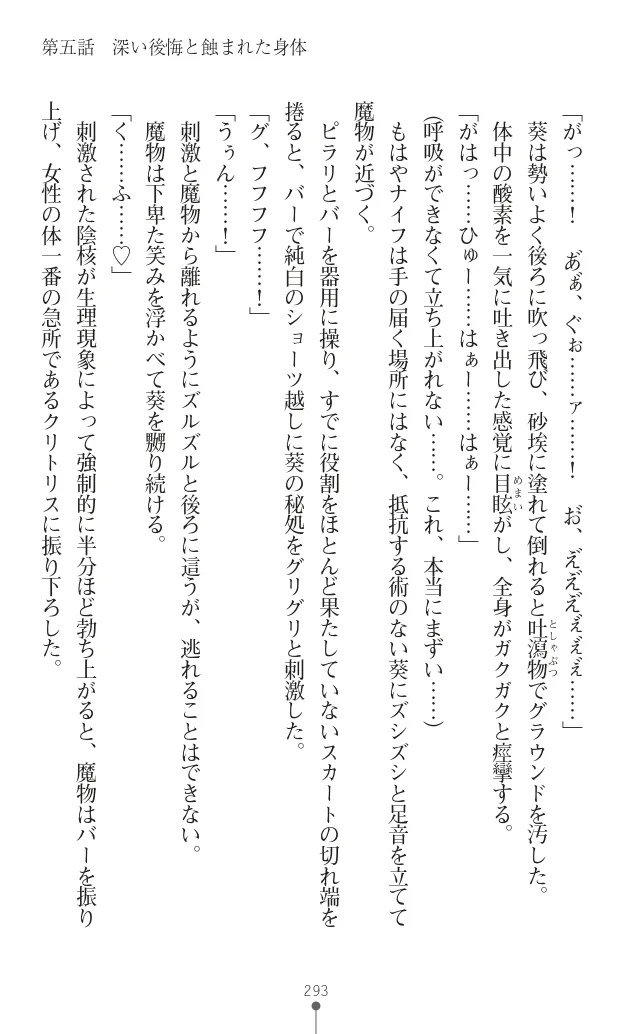 第五話　深い後悔と蝕まれた身体
「がっ……！　あ゛ぁ、ぐぉ……ァ……！　お゛、え゛え゛え゛ぇ゛ぇ゛ぇ゛……」
葵は勢いよく後ろに吹っ飛び、砂埃に塗れて倒れると吐瀉物でグラウンドを汚した。
体中の酸素を一気に吐き出した感覚に目眩がし、全身がガクガクと痙攣する。
「がはっ……ひゅー……はぁー……はぁー……」
（呼吸ができなくて立ち上がれない……。これ、本当にまずい……）
もはやナイフは手の届く場所にはなく、抵抗する術のない葵にズシズシと足音を立てて
魔物が近づく。
ピラリとバーを器用に操り、すでに役割をほとんど果たしていないスカートの切れ端を
捲ると、バーで純白のショーツ越しに葵の秘処をグリグリと刺激した。
「グ、フフフフ……！」
「うぅん……！」
刺激と魔物から離れるようにズルズルと後ろに這うが、逃れることはできない。
魔物は下卑た笑みを浮かべて葵を嬲り続ける。
「く……ふ……♡」
刺激された陰核が生理現象によって強制的に半分ほど勃ち上がると、魔物はバーを振り
上げ、女性の体一番の急所であるクリトリスに振り下ろした。
293